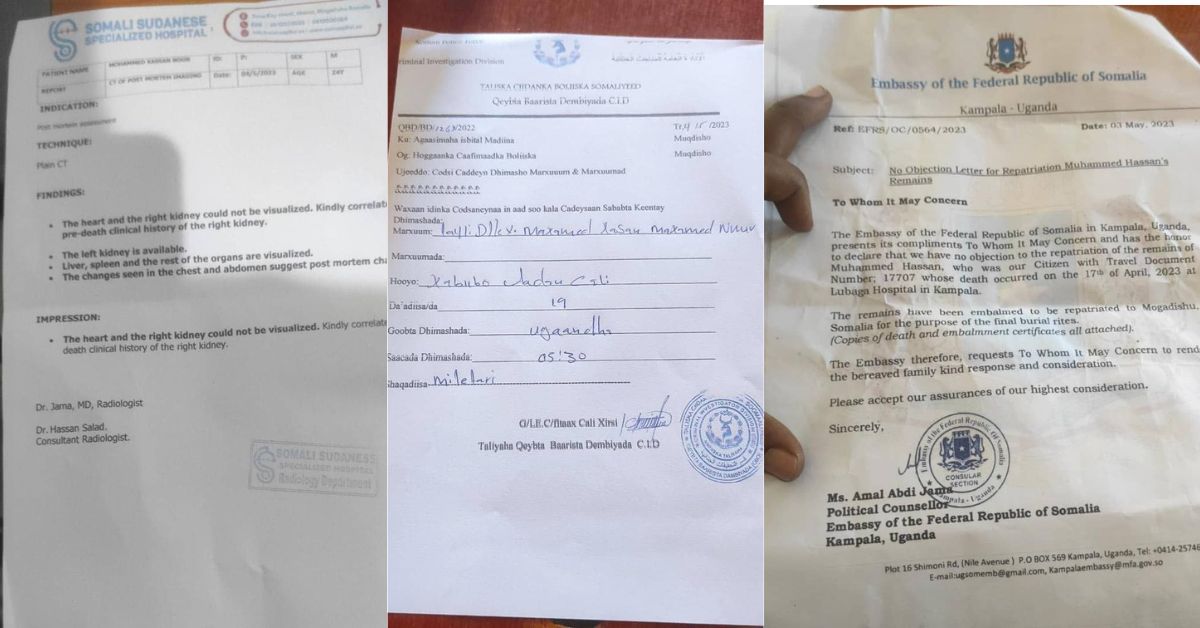 SOMALI SUDANESE
SPECIALIZED HOSPITAL
PATIENT NAME MOHAMMED HASSAN NOOR ID: P: SEX M
REPORT CT OF POST MORTEM IMAGING Date: 04/5/2023 AGE 24Y
INDICATION:
Post mortem assessment
TECHNIQUE:
Plain CT
FINDINGS:
• The heart and the right kidney could not be visualized. Kindly correlat
pre-death clinical history of the right kidney.
• The left kidney is available.
• Liver, spleen and the rest of the organs are visualized.
• The changes seen in the chest and abdomen suggest post mortem cha
IMPRESSION:
• The heart and the right kidney could not be visualized. Kindly correlate
death clinical history of the right kidney.
Dr. Jama, MD, Radiologist
Dr. Hassan Salad.
Consultant Radiologist.
SOMALI SUDANESE
SPECIALIZED HOSPITAL
Radiology Department
Somali Police Force
riminal Investigation Division
TALISKA CIIDANKA BOLIISKA SOMALIYEED
Qeybta Baarista Dembiyada C.I.D
QBD/BD/1263/2022 Tr,4/5/2023
Ku: Agaasimaha isbital Madiina Muqdisho
Og: Hoggaanka Caafimaadka Boliiska Muqdisho
Ujeeddo: Codsi Caddeyn Dhimasho Marxuum & Marxuumad
&&&&&&&&&&&&
Waxaan idinka Codsaneynaa in aad soo kala Cadeysaan Sababta Keentay
Dhimashada:
Marxuum: Maxamed Xasan Maxamed Nuur
Marxuumada:
Hooyo: Cali
Da'adiisa/da 19
Goobta Dhimashada: ugaandha
Saacada Dhimashada: 05:30
Shaqadiisa milatari
G/LE.C/fitaax Cali Xirsi
Taliyaha Qeybta Baarista Dembiyada C.I.D
Embassy of the Federal Republic of Somalia
Kampala - Uganda
Ref: EFRS/OC/0564/2023 Date: 03 May, 2023
Subject: No Objection Letter for Repatriation Muhammed Hassan's
Remains
To Whom It May Concern
The Embassy of the Federal Republic of Somalia in Kampala, Uganda,
presents its compliments To Whom It May Concern and has the honor
to declare that we have no objection to the repatriation of the remains of
Muhammed Hassan, who was our Citizen with Travel Document
Number; 17707 whose death occurred on the 17th of April, 2023 at
Lubaga Hospital in Kampala.
The remains have been embalmed to be repatriated to Mogadishu,
Somalia for the purpose of the final burial rites.
(Copies of death and embalmment certificates all attached).
The Embassy therefore, requests To Whom It May Concern to rend
the bereaved family kind response and consideration.
Please accept our assurances of our highest consideration.
Sincerely,
Embassy of the Federal Republic of Somalia
CONSULAR
SECTION
Kampala - Uganda
Ms. Amal Abdi Jama
Political Counsellor
Embassy of the Federal Republic of Somalia
Kampala, Uganda
Plot 16 Shimoni Rd, (Nile Avenue ) P.O BOX 569 Kampala, Uganda, Tel: +0414-25746
E-mail:ugsomemb@gmail.com, Kampalaembassy@mfa.gov.so